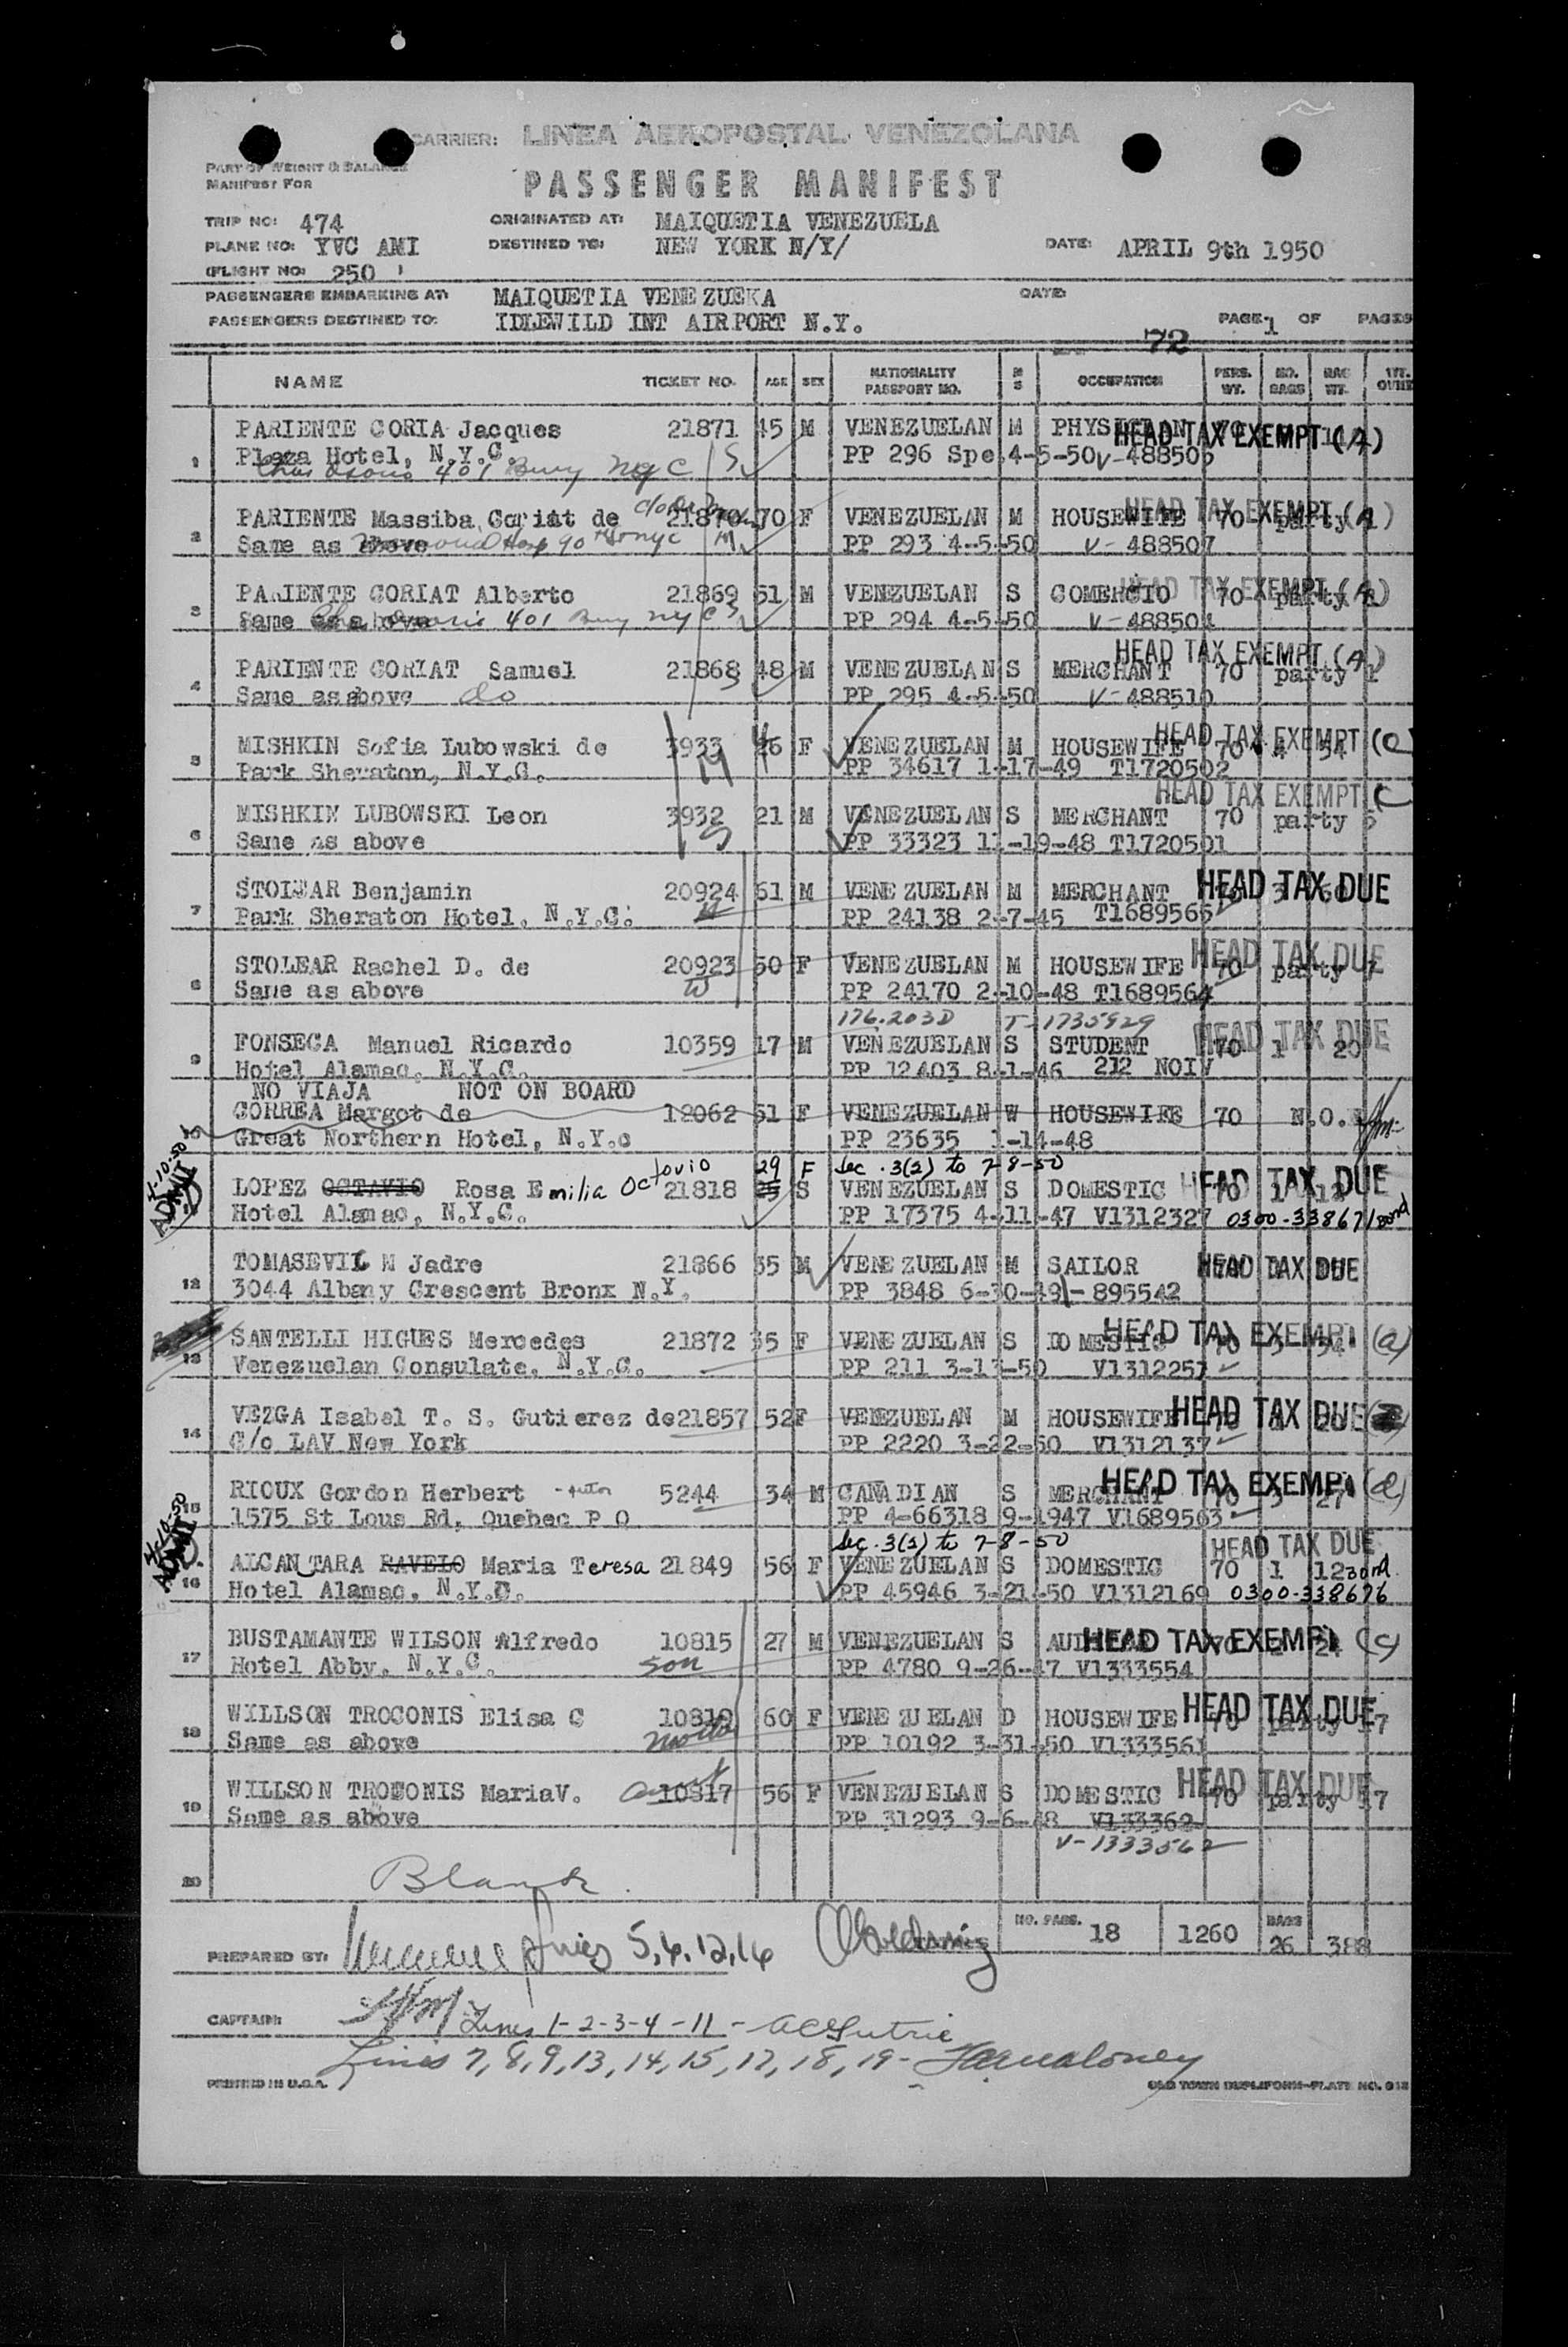 CARRIER: LINEA AEROPOSTAL VENEZOLANA
PART OF WEIGHT & BALANCE
MANIFEST FOR
PASSENGER MANIFEST
TRIP NO: 474 ORIGINATED AT: MAIQUETIA VENEZUELA
PLANE NO: YVC AMI DESTINED TO: NEW YORK N/Y/ DATE: APRIL 9th 1950
FLIGHT NO: 250
PASSENGERS EMBARKING AT: MAIQUETIA VENEZUEKA DATE:
PASSENGERS DESTINED TO: IDLEWILD INT AIRPORT N.Y. PAGE 1 OF PAGES
72
NAME TICKET NO. AGE SEX NATIONALITY PASSPORT NO. M S OCCUPATION PERS. WT. NO. BAGS BAG WT.
PARIENTE CORIA Jacques 21871 45 M VENEZUELAN M PHYSICIAN 70 HEAD TAX EXEMPT (A)
1 Plaza Hotel, N.Y.C. PP 296 Spe 4-5-50 V-488505
401 NYC S
PARIENTE Massiba Coriat de 21870 70 F VENEZUELAN M HOUSEWIFE 70 party 1 HEAD TAX EXEMPT (A)
2 Same as above M PP 293 4-5-50 V-488507
PARIENTE CORIAT Alberto 21869 51 M VENEZUELAN S COMERCIO 70 party HEAD TAX EXEMPT (A)
3 Same as above 401 NYC S PP 294 4-5-50 V-488504
PARIENTE CORIAT Samuel 21868 48 M VENEZUELAN S MERCHANT 70 party 1 HEAD TAX EXEMPT (A)
4 Same as above do S PP 295 4-5-50 V-488510
MISHKIN Sofia Lubowski de 3933 46 F VENEZUELAN M HOUSEWIFE 70 4 54 HEAD TAX EXEMPT (C
5 Park Sheraton, N.Y.C. M PP 34617 1-17-49 T1720502
MISHKIN LUBOWSKI Leon 3932 21 M VENEZUELAN S MERCHANT 70 party 5 HEAD TAX EXEMPT (C
6 Same as above S PP 33323 11-19-48 T1720501
STOLEAR Benjamin 20924 61 M VENEZUELAN M MERCHANT 70 3 60 HEAD TAX DUE
7 Park Sheraton Hotel, N.Y.C. PP 24138 2-7-45 T1689565
STOLEAR Rachel D. de 20923 50 F VENEZUELAN M HOUSEWIFE 70 party 7 HEAD TAX DUE
8 Same as above W PP 24170 2-10-48 T1689564
176.203D T-1735929
FONSECA Manuel Ricardo 10359 17 M VENEZUELAN S STUDENT 70 1 20 HEAD TAX DUE
9 Hotel Alamac, N.Y.C. PP 12403 8-1-46 212 NOIV
NO VIAJA NOT ON BOARD
CORREA Margot de 12062 51 F VENEZUELAN W HOUSEWIFE 70 N.O.
10 Great Northern Hotel, N.Y.c PP 23635 1-14-48
4-10-50 ADMIT Octovio 29 F Sec. 3(2) to 7-8-50
LOPEZ OCTAVIO Rosa Emilia 21818 25 S VENEZUELAN S DOMESTIC 70 1 12 HEAD TAX DUE
Hotel Alamac, N.Y.C. PP 17375 4-11-47 V1312327 0300-338671 bond
TOMASEVIL N Jadre 21866 35 M VENEZUELAN M SAILOR HEAD TAX DUE
12 3044 Albany Crescent Bronx N.Y. PP 3848 6-30-49 V-895542
SANTELLI HIGUES Mercedes 21872 35 F VENEZUELAN S DOMESTIC 70 3 54 HEAD TAX EXEMPT (a)
13 Venezuelan Consulate, N.Y.C. PP 211 3-13-50 V1312257
VEZGA Isabel T. S. Gutierez de 21857 52 F VENEZUELAN M HOUSEWIFE HEAD TAX DUE
14 C/o LAV New York PP 2220 3-22-50 V1312137
RIOUX Gordon Herbert 5244 34 M CANADIAN S MERCHANT 70 3 27 HEAD TAX EXEMPT (d)
15 1575 St Lous Rd, Quebec P O PP 4-66318 9-1947 V1689563
4-10-50 ADMIT Sec. 3(2) to 7-8-50 HEAD TAX DUE
ALCANTARA RAVELO Maria Teresa 21849 56 F VENEZUELAN S DOMESTIC 70 1 12 Bond
16 Hotel Alamac, N.Y.C. PP 45946 3-21-50 V1312169 0300-338676
BUSTAMANTE WILSON Alfredo 10815 27 M VENEZUELAN S 70 2 24 HEAD TAX EXEMPT (C)
17 Hotel Abby, N.Y.C. son PP 4780 9-26-47 V1333554
WILLSON TROCONIS Elisa C 10819 60 F VENEZUELAN D HOUSEWIFE 70 party 17 HEAD TAX DUE
18 Same as above PP 10192 3-31-50 V1333561
WILLSON TROCONIS MariaV. aunt 10817 56 F VENEZUELAN S DOMESTIC 70 party 17 HEAD TAX DUE
19 Same as above PP 31293 9-6-48 V133362
V-1333562
20 Blank
PREPARED BY: 5,6,12,16 NO. PASS. 18 1260 BAGS 26 388
CAPTAIN: Lines 1-2-3-4-11-
Lines 7,8,9,13,14,15,17,18,19-
PRINTED IN U.S.A. OLD TOWN DUPLIFORM-PLATE NO.